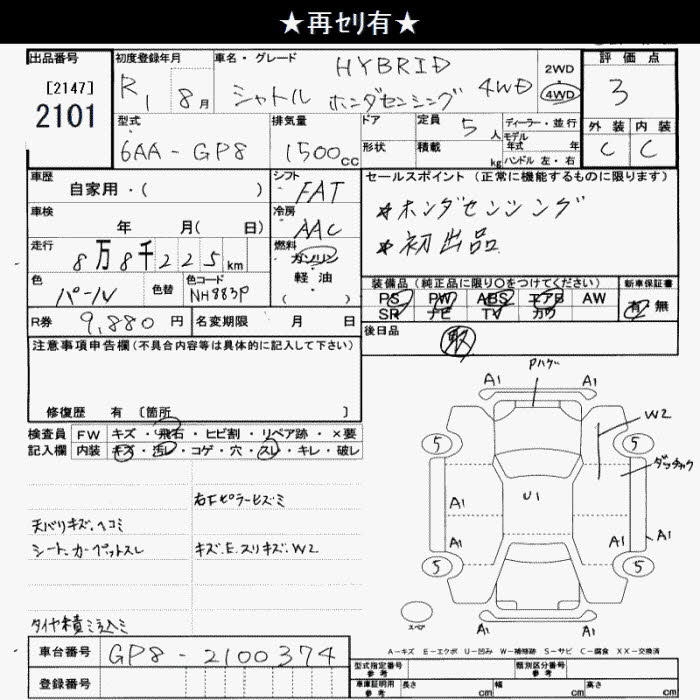 ★再セリ有★
出品番号
[2147]
2101
初度登録年月
R 1 8月
車名・グレード
HYBRID
シャトル ホンダセンシング 4WD
2WD
4WD
評価点
3
外装 内装
C C
型式
6AA-GP8
排気量
1500cc
ドア
形状
定員 5人
積載 kg
ディーラー・並行
モデル
年式 年
ハンドル 左・右
車歴
自家用・( )
シフト
FAT
車検
年 月( 日)
冷房
AAC
走行
8万8千225km
燃料
ガソリン
軽油
( )
色
パール
色替
色コード
NH883P
R券 9,880円
名変期限 月 日
セールスポイント (正常に機能するものに限ります)
★ホンダセンシング
★初出品
装備品 (純正品に限り○をつけてください)
PS PW ABS エアB AW
SR ナビ TV カワ
新車保証書
有・無
後日品
取
注意事項申告欄(不具合内容等は具体的に記入して下さい)
修復歴 有 〔箇所 〕
検査員
記入欄
FW キズ・飛石・ヒビ割・リペア跡・×要
内装 キズ・汚レ・コゲ・穴・スレ・キレ・破レ
右Fピラーヒズミ
天バリキズ、ヘコミ
シート、カーペットスレ
キズ、E、スリキズ、W2
タイヤ積ミ込ミ
車台番号 GP8-2100374
登録番号
Pハゲ
A1 A1
W2
5 5
ダッチャク
U1
A1
A1 A1 A1
5 5
スペア
A1 A1
A-キズ E-エクボ U-凹み W-補修跡 S-サビ C-腐食 XX-交換済
型式指定番号
参考
類別区分番号
参考
車庫証明用
参考
長さ cm 幅 cm 高さ cm